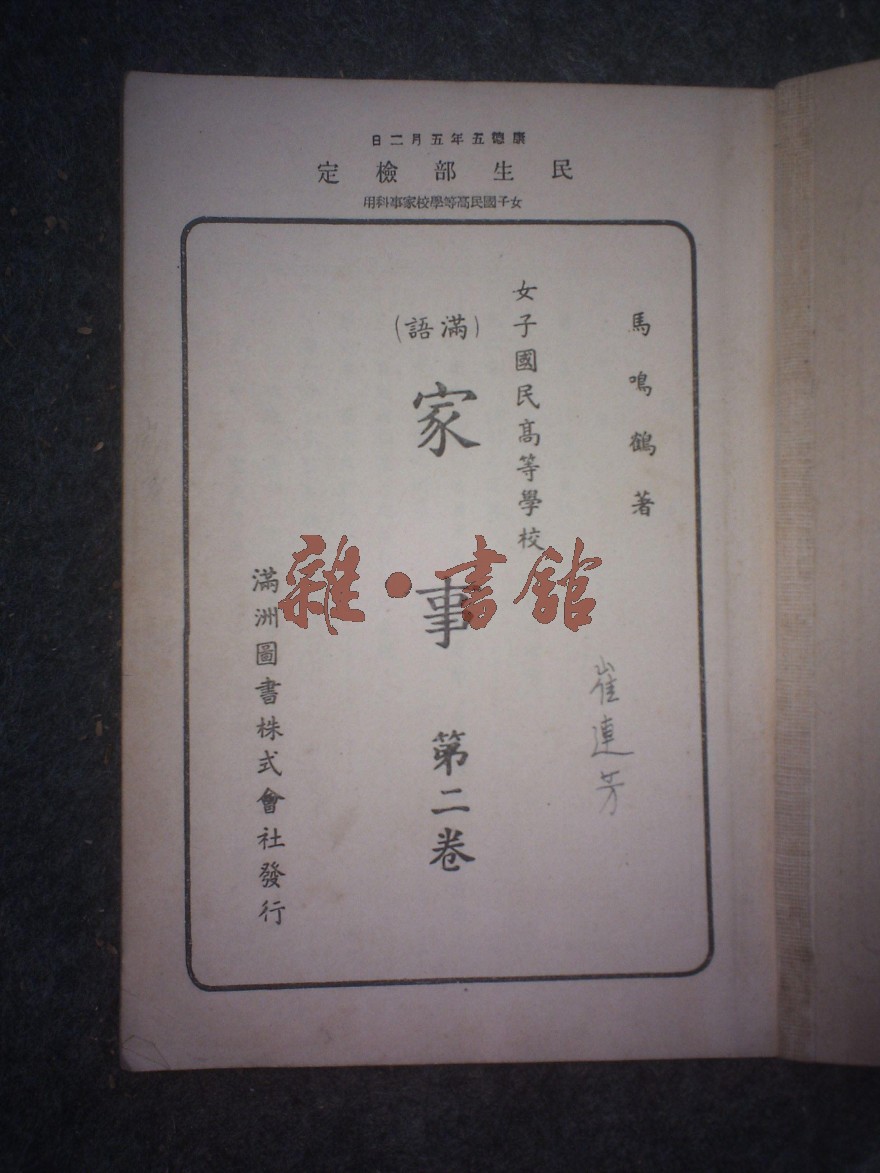 康德五年五月二日
民生部檢定
女子國民高等學校家事科用
馬鳴鶴著
女子國民高等學校
(滿語)
家事 第二卷
滿洲圖書株式會社發行
崔連芳
雜·書館